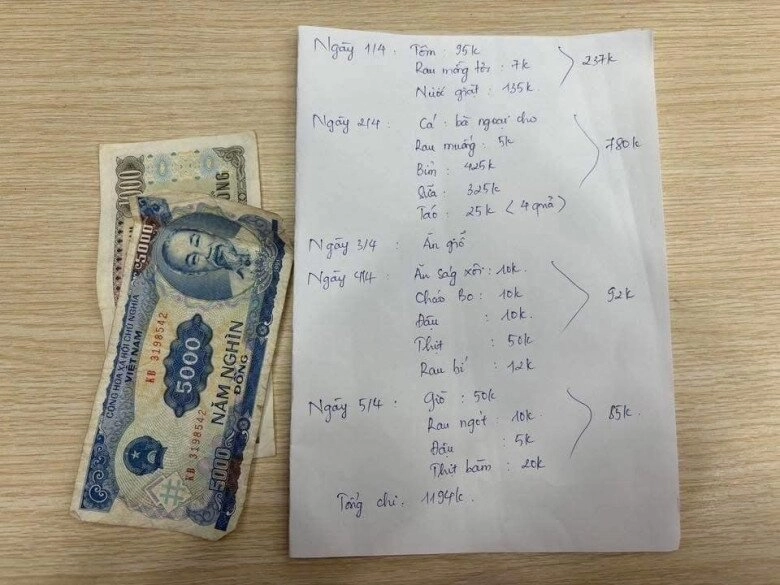 Ngày 1/4 : Tôm : 95k
Rau mồng tơi : 7k
Nước giặt : 135k
237k
Ngày 2/4 : Cá : bà ngoại cho
Rau muống : 5k
Bỉm : 425k
Sữa : 325k
Táo : 25k (4 quả)
780k
Ngày 3/4 : Ăn giỗ
Ngày 4/4 : Ăn sáng xôi : 10k
Cháo Bo : 10k
Đậu : 10k
Thịt : 50k
Rau bí : 12k
92k
Ngày 5/4 : Giò : 50k
Rau ngót : 10k
Đậu : 5k
Thịt băm : 20k
85k
Tổng chi : 1194k
CỘNG HÒA XÃ HỘI CHỦ NGHĨA
VIỆT NAM
KB 3198542
5000
NĂM NGHÌN
ĐỒNG
KB 3198542
5000
5000